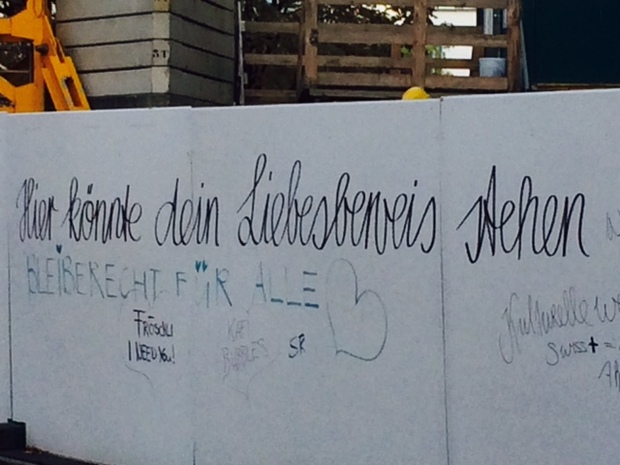 Hier könnte dein Liebesbeweis stehen
BLEIBERECHT FÜR ALLE
FRÖSCHLI
I NEED YOU!
BUBBLES
SR
Kulturelle
SWISS+ =